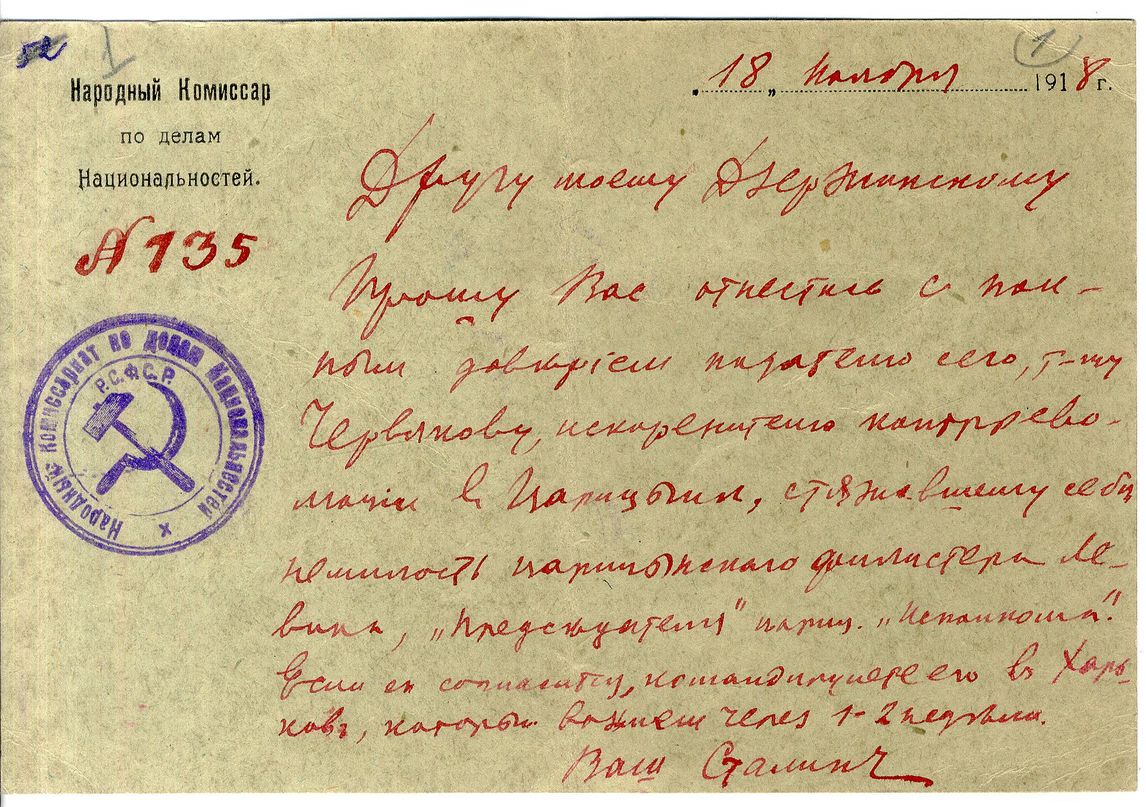 52 1
(1)
Народный Комиссар
по делам
Национальностей.
„ 18 „ ноября 1918 г.
N 135
Народный Комиссариат по делам Национальностей
Р.С.Ф.С.Р.
Другу моему Дзержинскому
Прошу Вас отнестись с пол-
ным довѣрiем подателю сего, т-щу
Червякову, искоренителю контррево-
люции в Царицыне, стяжавшему себе
немилость царицынского филистера Ле-
вина, „председателя" цариц. „Исполкома".
Если он согласится, командируйте его в Харь-
ков, который возьмем через 1-2 недѣли.
Ваш Сталин